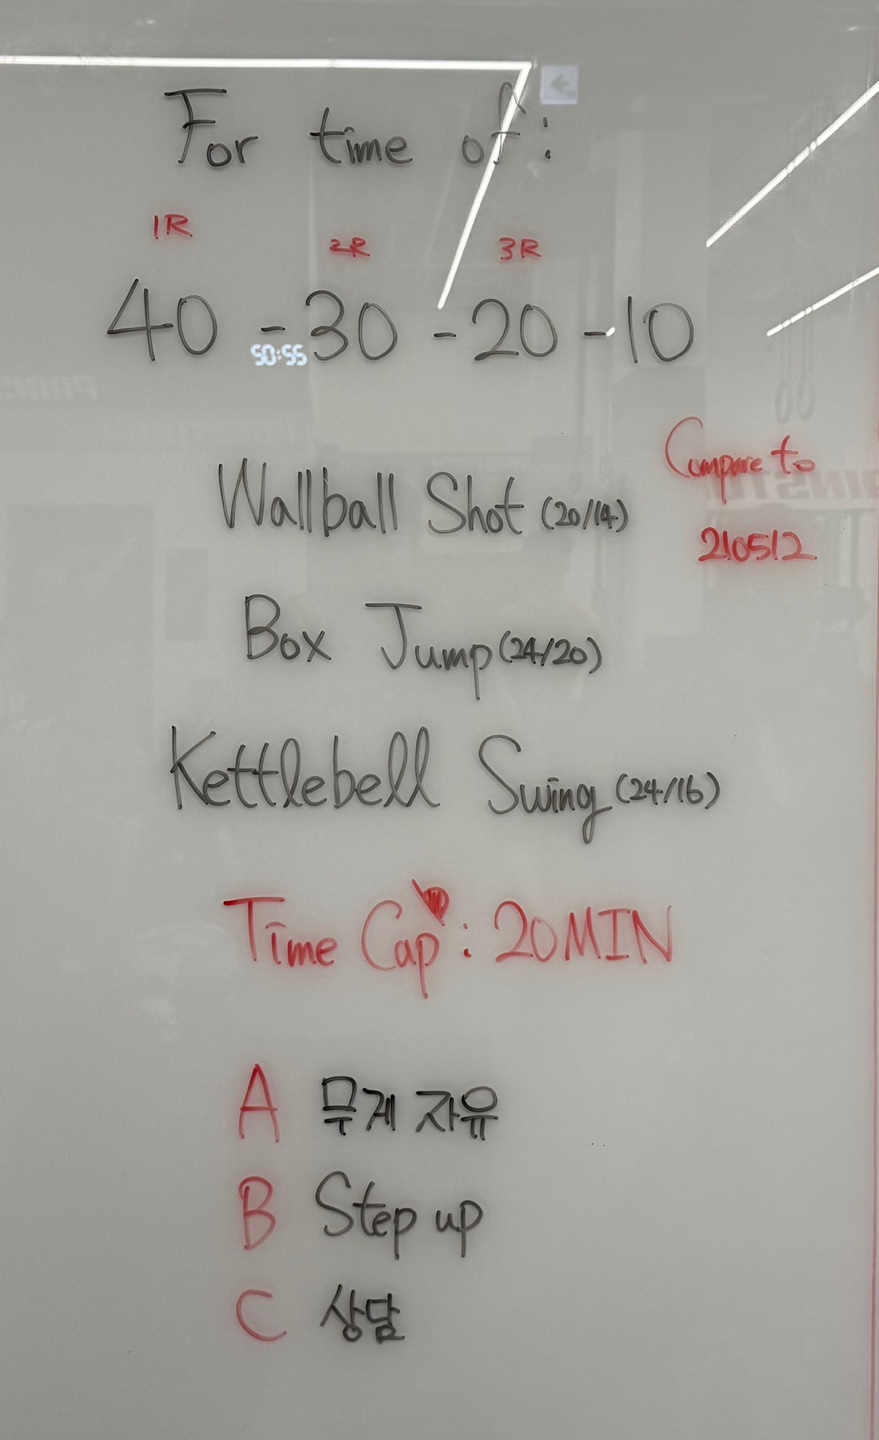 For time of:
1R 2R 3R
40 - 30 - 20 - 10
50:55
Compare to
210512
Wallball Shot (20/14)
Box Jump (24/20)
Kettlebell Swing (24/16)
Time Cap: 20MIN
A 무게 자유
B Step up
C 상담